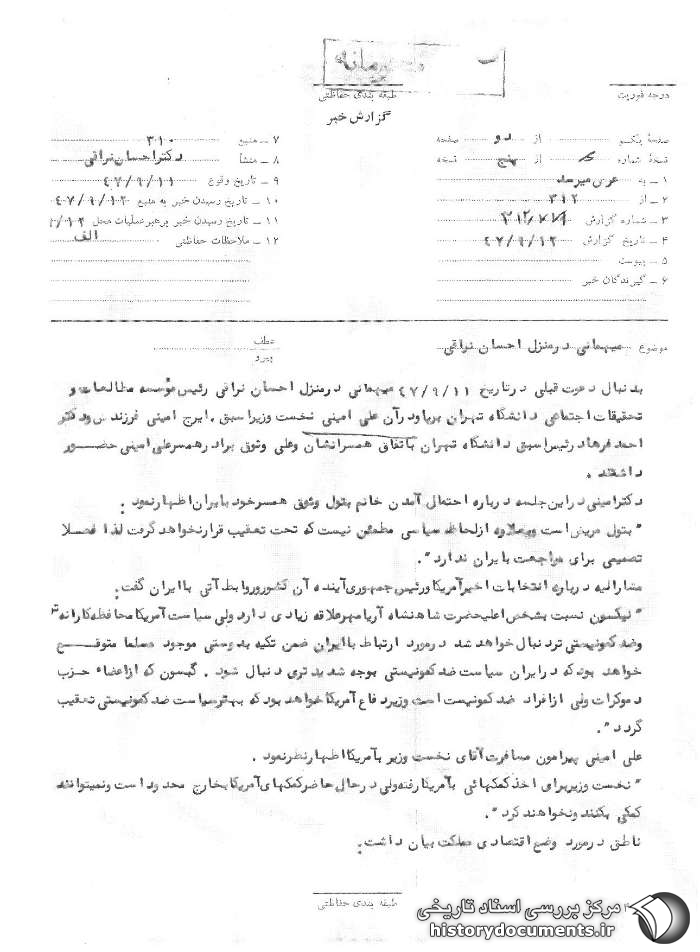 درجه فوریت
طبقه بندی حفاظتی
گزارش خبر
صفحهٔ یکـ از دو صفحه
نسخهٔ شماره از پنج نسخه
۱ـ به عرض میرسد
۲ـ از ۳۱۲
۳ـ شماره گزارش
۴ـ تاریخ گزارش ۴۷/۹/۱۲
۵ـ پیوست
۶ـ گیرندگان خبر
۷ـ منبع ۳۱۰
۸ـ منشأ دکتراحسان نراقی
۹ـ تاریخ وقوع ۴۷/۹/۱۱
۱۰ـ تاریخ رسیدن خبر به منبع ۴۷/۹/۱۲
۱۱ـ تاریخ رسیدن خبر برهبرعملیات محل
۱۲ـ ملاحظات حفاظتی الف
موضوع میهمانی درمنزل احسان نراقی
عطف
پیرو
بدنبال دعوت قبلی درتاریخ ۴۷/۹/۱۱ میهمانی درمنزل احسان نراقی رئیس مؤسسه مطالعات و
تحقیقات اجتماعی دانشگاه تهران برپاودرآن علی امینی نخست وزیراسبق ، ایرج امینی فرزندش ودکتر
احمدفرهادرئیس اسبق دانشگاه تهران باتفاق همسرانشان وعلی وثوق برادرهمسرعلی امینی حضـــور
داشتند .
دکترامینی دراین جلسه درباره احتمال آمدن خانم بتول وثوق همسرخود بایران اظهارنمود :
" بتول مریض است وبعلاوه ازلحاظ سیاسی مطمئن نیست که تحت تعقیب قرارنخواهد گرفت لذا فعـلا
تصمیمی برای مراجعت بایران ندارد " .
مشارالیه درباره انتخابات اخیرآمریکا ورئیس جمهوری آینده آن کشورروابط آتی باایران گفت :
" نیکسون نسبت بشخص اعلیحضرت شاهنشاه آریامهرعلاقه زیادی دارد ولی سیاست آمریکا محافظه کارانه تر
وضد کمونیستی ترد نبال خواهد شد درمورد ارتباط باایران ضمن تکیه بدوستی موجود مسلما متوقــــع
خواهد بود که درایران سیاست ضد کمونیستی بوجه شدیدتری دنبال شود . گیبسون که ازاعضاء حــزب
دموکرات ولی ازافراد ضد کمونیست است وزیردفاع آمریکا خواهد بود که بهترسیاست ضد کمونیستی تعقیب
گردد " .
علی امینی پیرامون مسافرت آقای نخست وزیر بآمریکا اظهارنظرنمود .
" نخست وزیربرای اخذ کمکهائی بآمریکا رفته ولی درحال حاضرکمکهای آمریکا بخارج محدود است ونمیتوانند
کمکی بکنند ونخواهند کرد " .
ناطق درمورد وضع اقتصادی مملکت بیان داشت :
طبقه بندی حفاظتی
مرکز بررسی اسناد تاریخی
historydocuments.ir